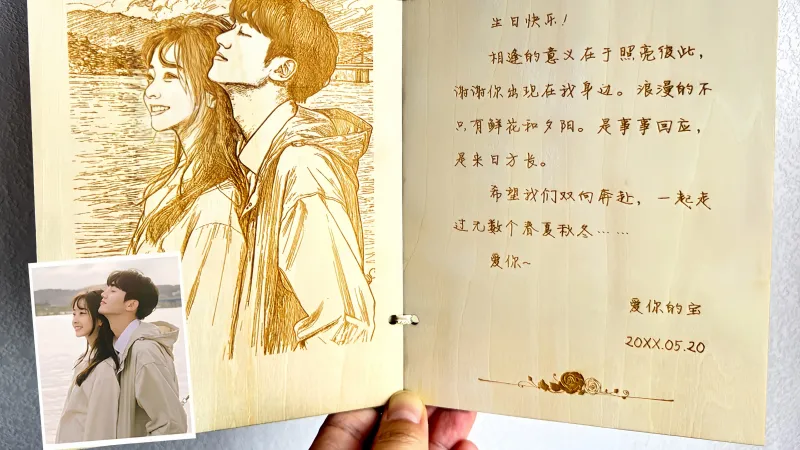 生日快乐!
相逢的意义在于照亮彼此,
谢谢你出现在我身边。浪漫的不
只有鲜花和夕阳。是事事回应,
是来日方长。
希望我们双向奔赴,一起走
过无数个春夏秋冬……
爱你~
爱你的宝
20XX.05.20